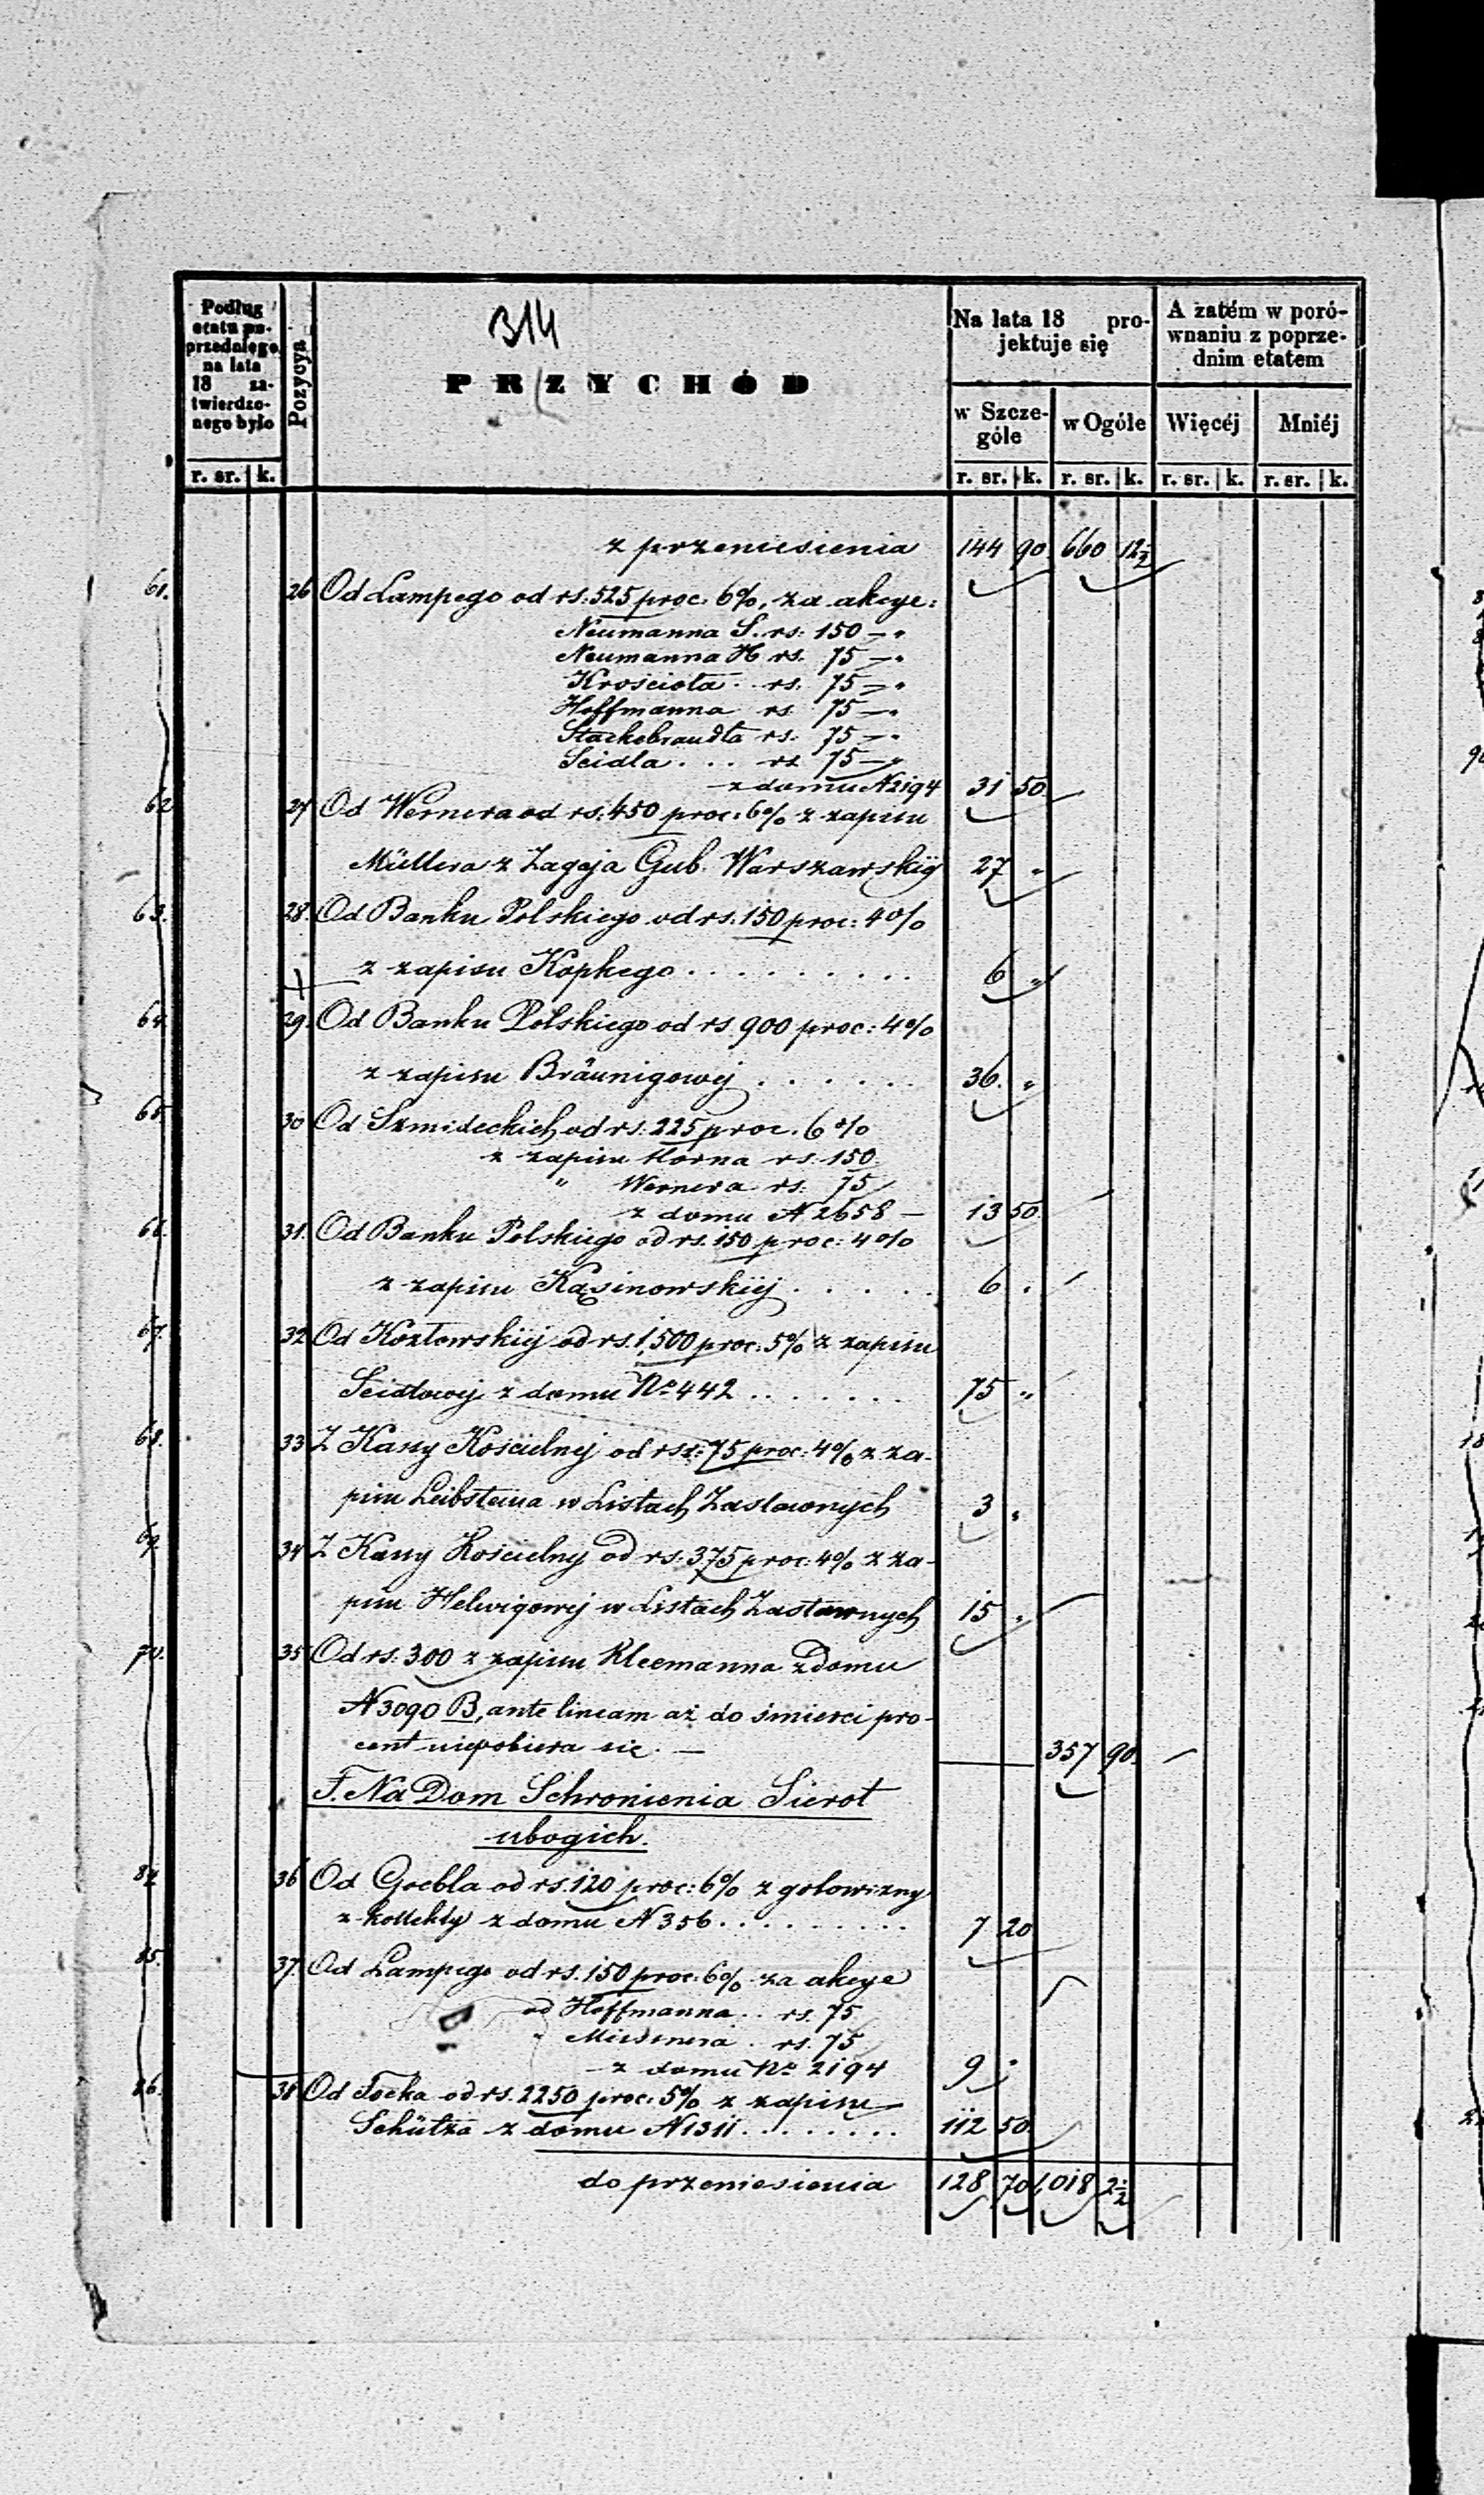 314
Podług etatu poprzedniego na lata 18 zatwierdzonego było
Pozycya
PRZYCHÓD
Na lata 18 projektuje się
A zatém w porównaniu z poprzednim etatem
w Szczególe w Ogóle Więcéj Mniéj
r. sr. k. r. sr. k. r. sr. k. r. sr. k. r. sr. k.
z przeniesienia 144 90 660 12½
61. 26 Od Lampego od rs: 525 proc. 6%, za akcye:
Neumanna S. rs: 150 — "
Neumanna H rs. 75 — "
Krościoła .. rs. 75 — "
Hoffmanna rs 75 — "
Stackebrandta rs. 75 — "
Seidla . . . rs 75 — "
z domu N 2194 31 50
62 27 Od Wernera od rs: 450 proc: 6% z zapisu
Müllera z Zagaja Gub. Warszawskiéj 27 "
63. 28. Od Banku Polskiego od rs: 150 proc: 4%
z zapisu Kopkego . . . . . . . . . 6 "
64. 29. Od Banku Polskiego od rs. 900 proc: 4%
z zapisu Bräunigowéj . . . . . . 36. "
65. 30 Od Szmideckich od rs: 225 proc. 6%
z zapisu Horna rs: 150.
" Wernera rs: 75
z domu N 2658 — 13 50.
66. 31. Od Banku Polskiego od rs. 150 proc: 4%
z zapisu Kąsinowskiéj . . . . . 6 "
67. 32 Od Kozłowskiéj od rs. 1,500 proc: 5% z zapisu
Seidlowéj z domu No 442 . . . . . . 75 "
68. 33 Z Kassy Kościelnéj od rsr: 75 proc: 4% z za-
pisu Leibsteina w Listach Zastawnych 3 "
69. 34 Z Kassy Kościelnéj od rs. 375 proc: 4% z za-
pisu Helwigowéj w Listach Zastawnych 15 "
70. 35 Od rs: 300 z zapisu Kleemanna z Domu
N 3090 B, ante lineam aż do śmierci pro-
cent niepobiera się. — 357 90.
F. Na Dom Schronienia Sierot
ubogich.
84 36 Od Goebla od rs. 120 proc: 6% z gotowizny
z kollekty z domu N 356 . . . . . . . . . 7 20
85. 37. Od Lampego od rs. 150 proc: 6% za akcye
od Hoffmanna .. rs. 75
" . rs. 75
— z domu No 2194 9 "
86. 38 Od Focka od rs. 2250 proc: 5% z zapisu
Schütza z domu N 1311 . . . . . . . . 112 50
do przeniesienia 128 70 1,018 2½